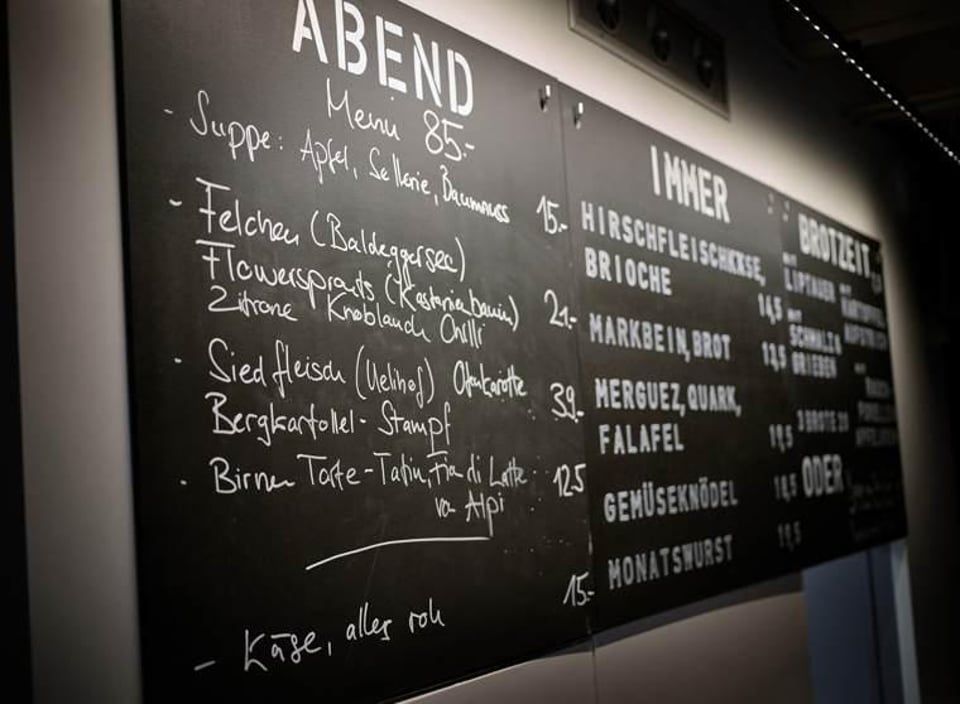 ABEND
Menü 85.-
- Suppe: Apfel, Sellerie, Baumnuss 15.-
- Felchen (Baldeggersee)
Flowersprouts (Kastanienbaum) 21.-
Zitrone Knoblauch Chilli
- Siedfleisch (Uelihof) Ofenkarotte 39.-
Bergkartoffel-Stampf
- Birnen Tarte-Tatin, Fior di Latte 12.5
von Alpi
15.-
- Käse, alles roh
IMMER
HIRSCHFLEISCHKÄSE,
BRIOCHE 14,5
MARKBEIN, BROT 13,5
MERGUEZ, QUARK,
FALAFEL 19,5
GEMÜSEKNÖDEL 18,5
MONATSWURST 19,5
BROTZEIT
MIT
LIPTAUER
MIT
SCHMALZ &
GRIEBEN
3 BROTE 20
ODER